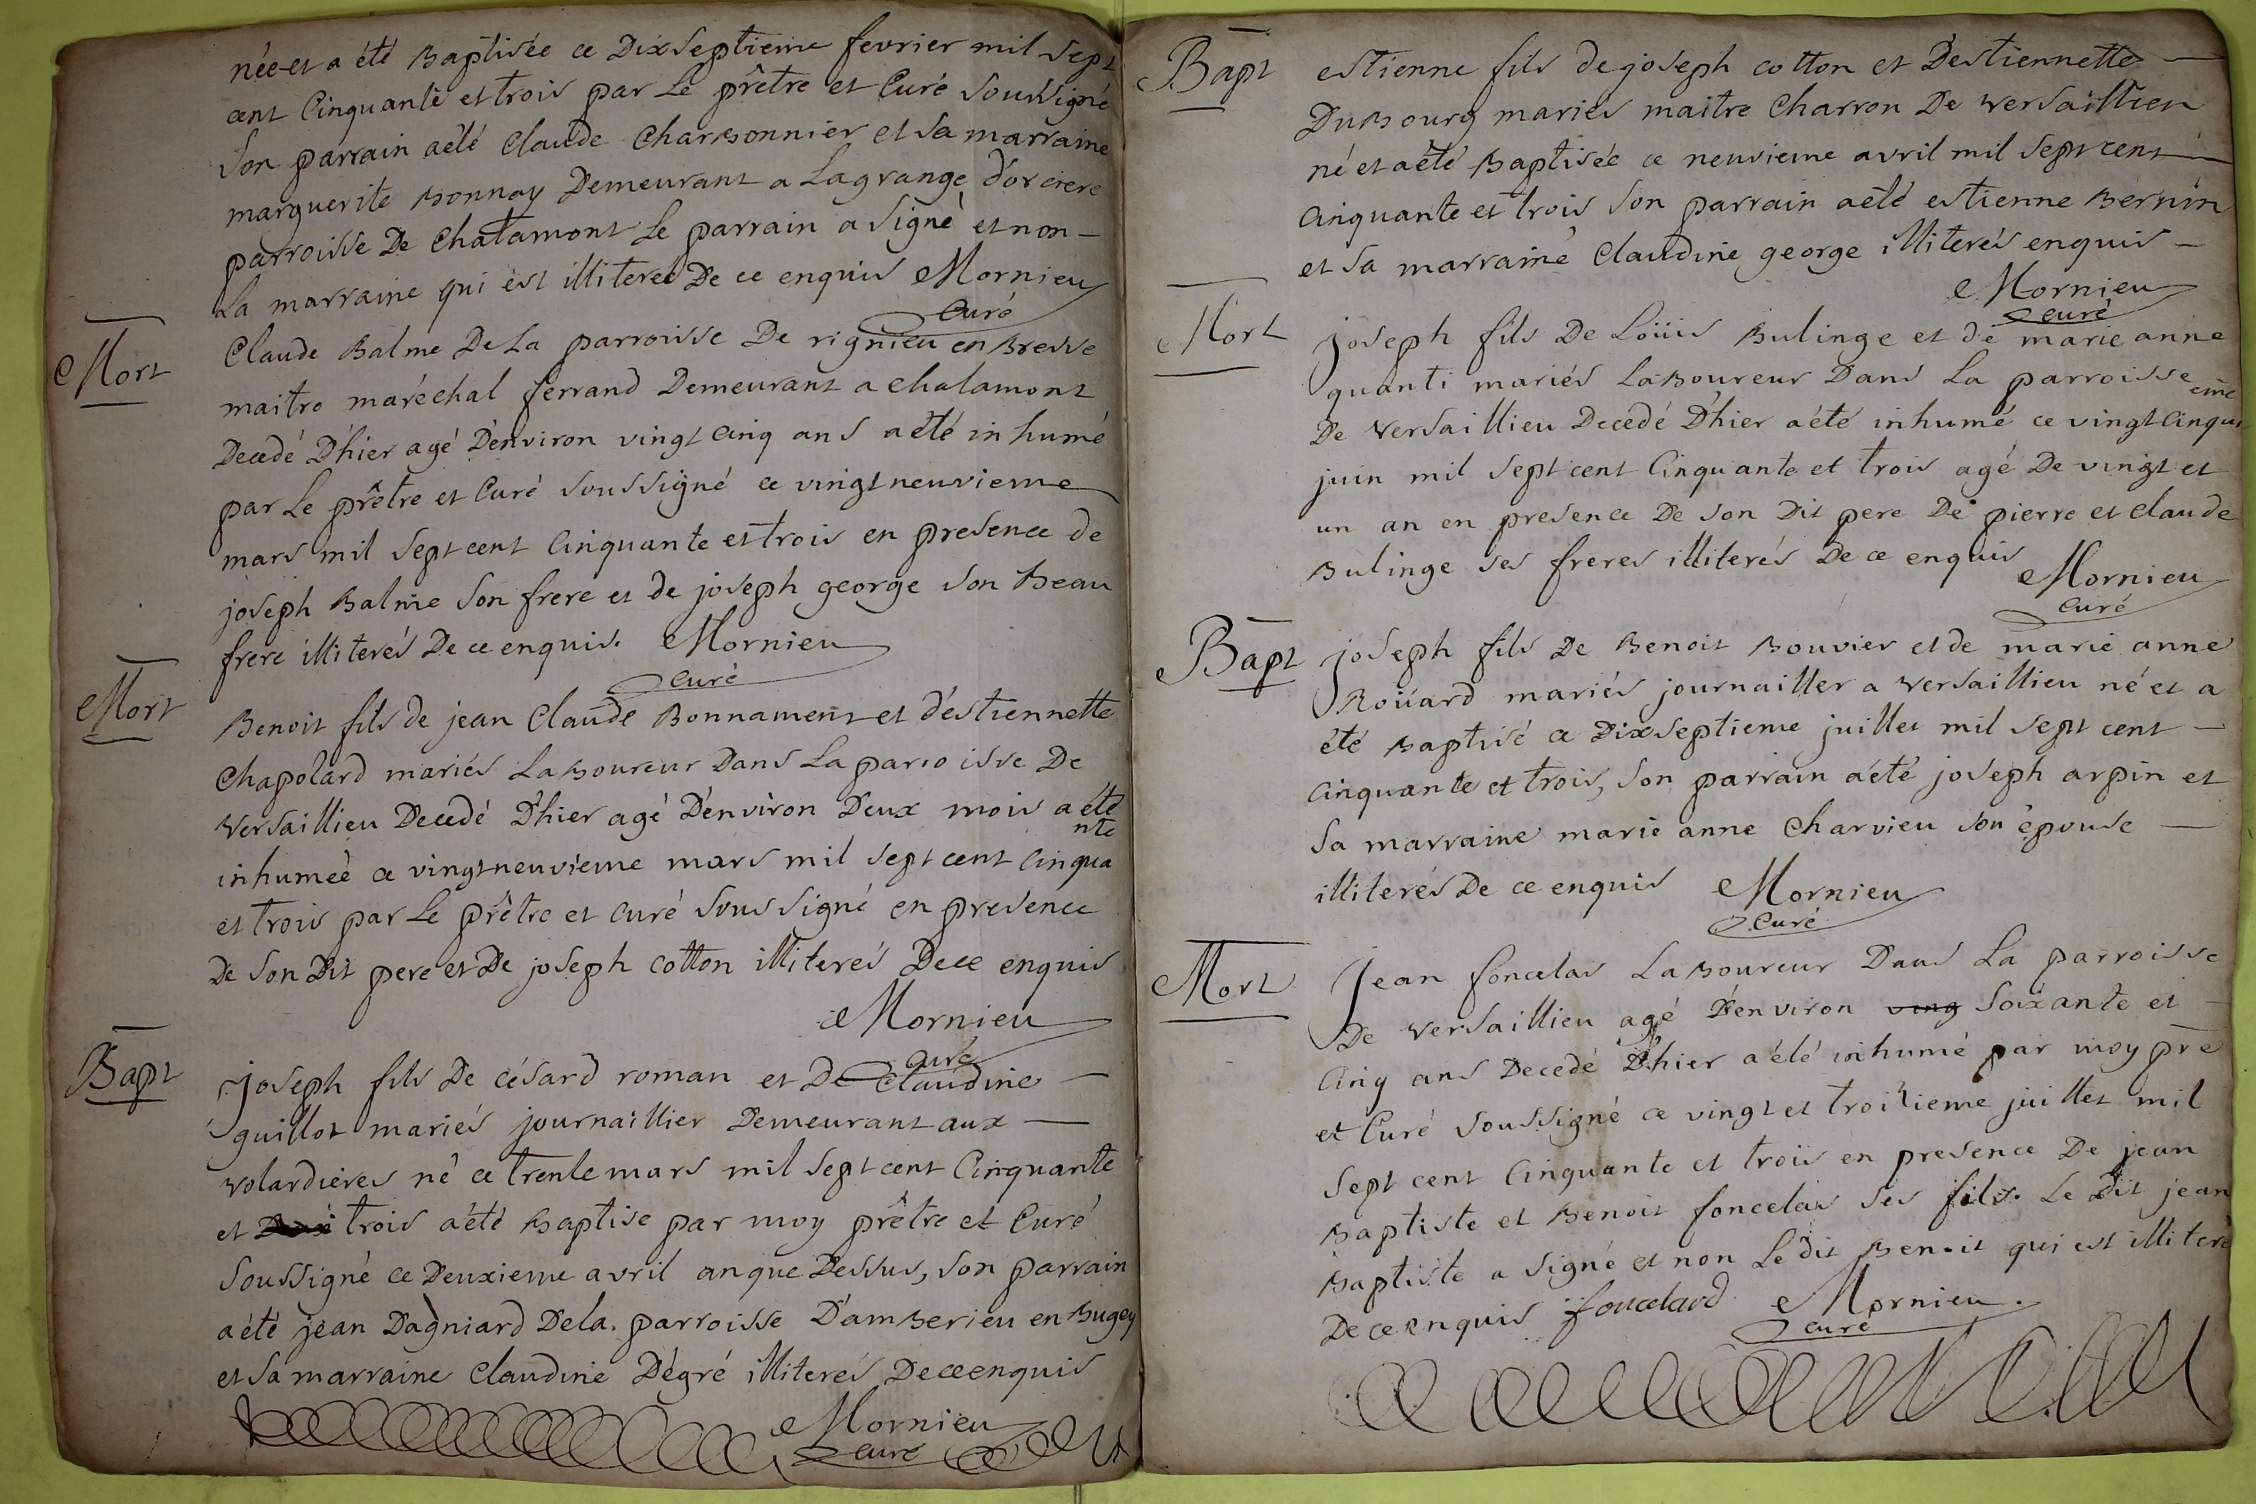 née et a été Baptisée ce Dixseptieme fevrier mil sept
cent Cinquante et trois par Le prêtre et Curé soussigné
son parrain aété Claude Charbonnier et sa marraine
marguerite Bonnay Demeurant a Lagrange d'orciere
parroisse De Chatamont Le parrain a signé et non —
La marraine qui est illiteree De ce enquis Mornieu
Curé
Mort
Claude Balme De La parroisse De rignieu en Bresse
maitre maréchal ferrand Demeurant a chalamont
Decedé D'hier agé D'environ vingt Cinq ans a été inhumé
par Le prêtre et Curé soussigné ce vingt neuvieme
mars mil sept cent Cinquante et trois en presence de
joseph Balme son frere et de joseph george son beau
frere illiterés De ce enquis. Mornieu
Curé
Mort
Benoit fils de jean Claude Bonnament et d'estiennette
Chapolard mariés Laboureur Dans La parroisse De
versaillieu Decedé D'hier agé D'environ Deux mois a été
inhumée ce vingtneuvieme mars mil sept cent Cinquante
et trois par Le prêtre et curé soussigné en presence
De son Dit pere et De joseph cotton illiterés De ce enquis
Mornieu
Curé
Bapt
joseph fils De césard roman et De Claudine —
guillot mariés journaillier Demeurant aux —
volardieres né ce trente mars mil sept cent Cinquante
et trois aété Baptise par moy prêtre et Curé
soussigné ce Deuxieme avril an que Dessus, son parrain
a été jean Dagniard De la parroisse D'amberieu en Bugey
et sa marraine Claudine Dégré illiterés De ce enquis
Mornieu
curé
Bapt
estienne fils de joseph cotton et D'estiennette —
Dubourg mariés maitre Charron De versaillieu
né et aété Baptisée ce neuvieme avril mil sept cent —
Cinquante et trois son parrain aété estienne Bernin
et sa marraine Claudine george illiterés enquis —
Mornieu
curé
Mort
joseph fils De Loüis Bulinge et de marie anne
quanti mariés Laboureur Dans La parroisse
De versaillieu Decedé D'hier aété inhumé ce vingt Cinquieme
juin mil sept cent Cinquante et trois agé De vingt et
un an en presence De son Dit pere De pierre et claude
Bulinge ses freres illiterés De ce enquis
Mornieu
Curé
Bapt
joseph fils De Benoit Bouvier et de marie anne
Roüard mariés journailler a versaillieu né et a
été Baptisé ce Dixseptieme juillet mil sept cent —
Cinquante et trois, son parrain a été joseph arpin et
sa marraine marie anne Charvieu son épouse —
illiterés De ce enquis Mornieu
Curé
Mort
Jean foncelas Laboureur Dans La parroisse
De versaillieu agé D'environ ving soixante et —
Cinq ans Decedé D'hier a été inhumé par moy pre
et Curé soussigné ce vingt et troisieme juillet mil
sept cent Cinquante et trois en presence De jean
Baptiste et Benoit foncelas ses fils. Le dit jean
Baptiste a signé et non Le dit Benoit qui est illiteré
De ce enquis foncelard Mornieu.
curé